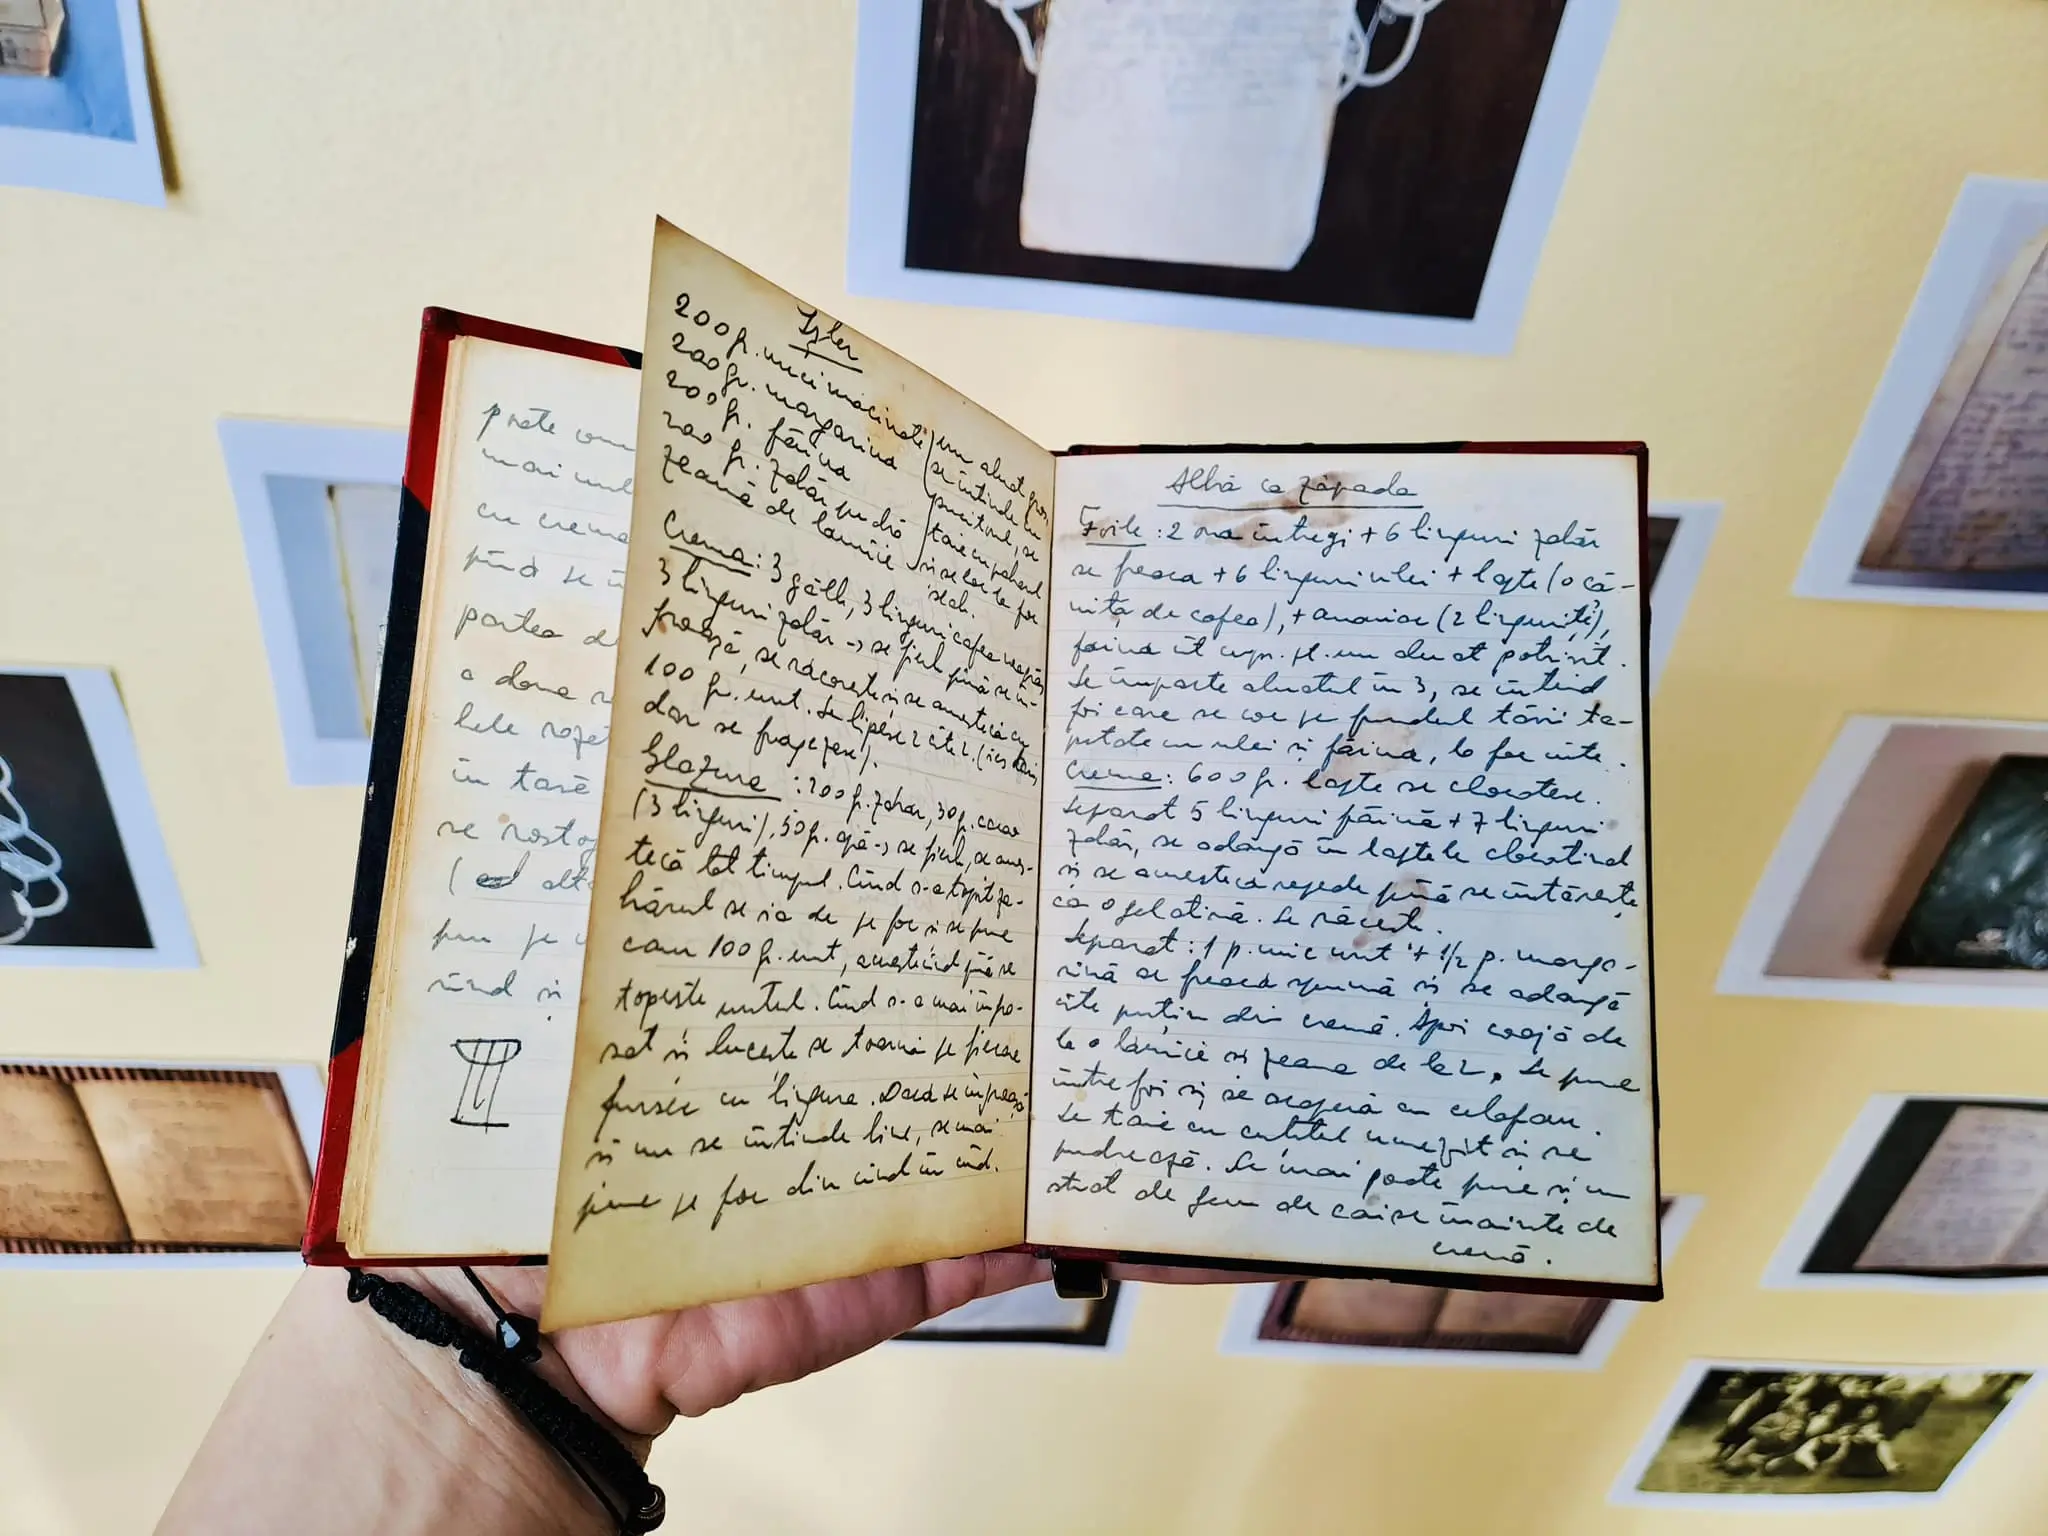 poate
mai mult
cu crema
pînă se
partea de
a doua
lele
în tasă
se
( alt
pun pe
rînd și
Ișler
200 gr. nuci măcinate
200 gr. margarina
200 gr. făina
200 gr. zahăr pudră
zeamă de lamîie
un aluat gros
se întinde cu
sucitorul, se
taie cu paharul
și se coc la foc
slab.
Crema: 3 gălb, 3 linguri cafea neagră
3 linguri zahăr -> se fierb pînă se în-
groașă, se răcorește și se amestecă cu
100 gr. unt. Se lipesc 2 cîte 2. (ies tari,
dar se frăgezesc).
Glazura: 200 gr. zahar, 30 gr. cacao
(3 linguri), 50 gr. apă -> se fierb, se ames-
tecă tot timpul. Cînd s-a topit za-
hărul se ia de pe foc și se pune
cam 100 gr. unt, amestecînd pînă se
topește untul. Cînd s-a mai îngro-
șat și lucește se toarnă pe fiecare
fursec cu lingura. Dacă se îngroașă
și nu se întinde bine, se mai
pune pe foc din cînd în cînd.
Albă ca zăpada
Foile: 2 oua întregi + 6 linguri zahăr
se freaca + 6 linguri ulei + lapte (o că-
niță de cafea), + amoniac (2 lingurițe),
faina cît cupr. pt. un aluat potrivit.
Se împarte aluatul în 3, se întind
foi care se coc pe fundul tăvii ta-
petate cu ulei și făina, la foc iute.
Crema: 600 gr. lapte se clocotesc.
Separat 5 linguri făină + 7 linguri
zahăr, se adaugă în laptele clocotind
și se amesteca repede pînă se întărește
ca o gelatină. Se răcește.
Separat: 1 p. mic unt + 1/2 p. marga-
rină se freacă spumă și se adaugă
cîte puțin din cremă. Apoi coajă de
la o lamîie și zeama de la 2. Se pune
între foi și se acoperă cu celofan.
Se taie cu cutitul umezit și se
pudrează. Se mai poate pune și un
strat de gem de caise înainte de
cremă.